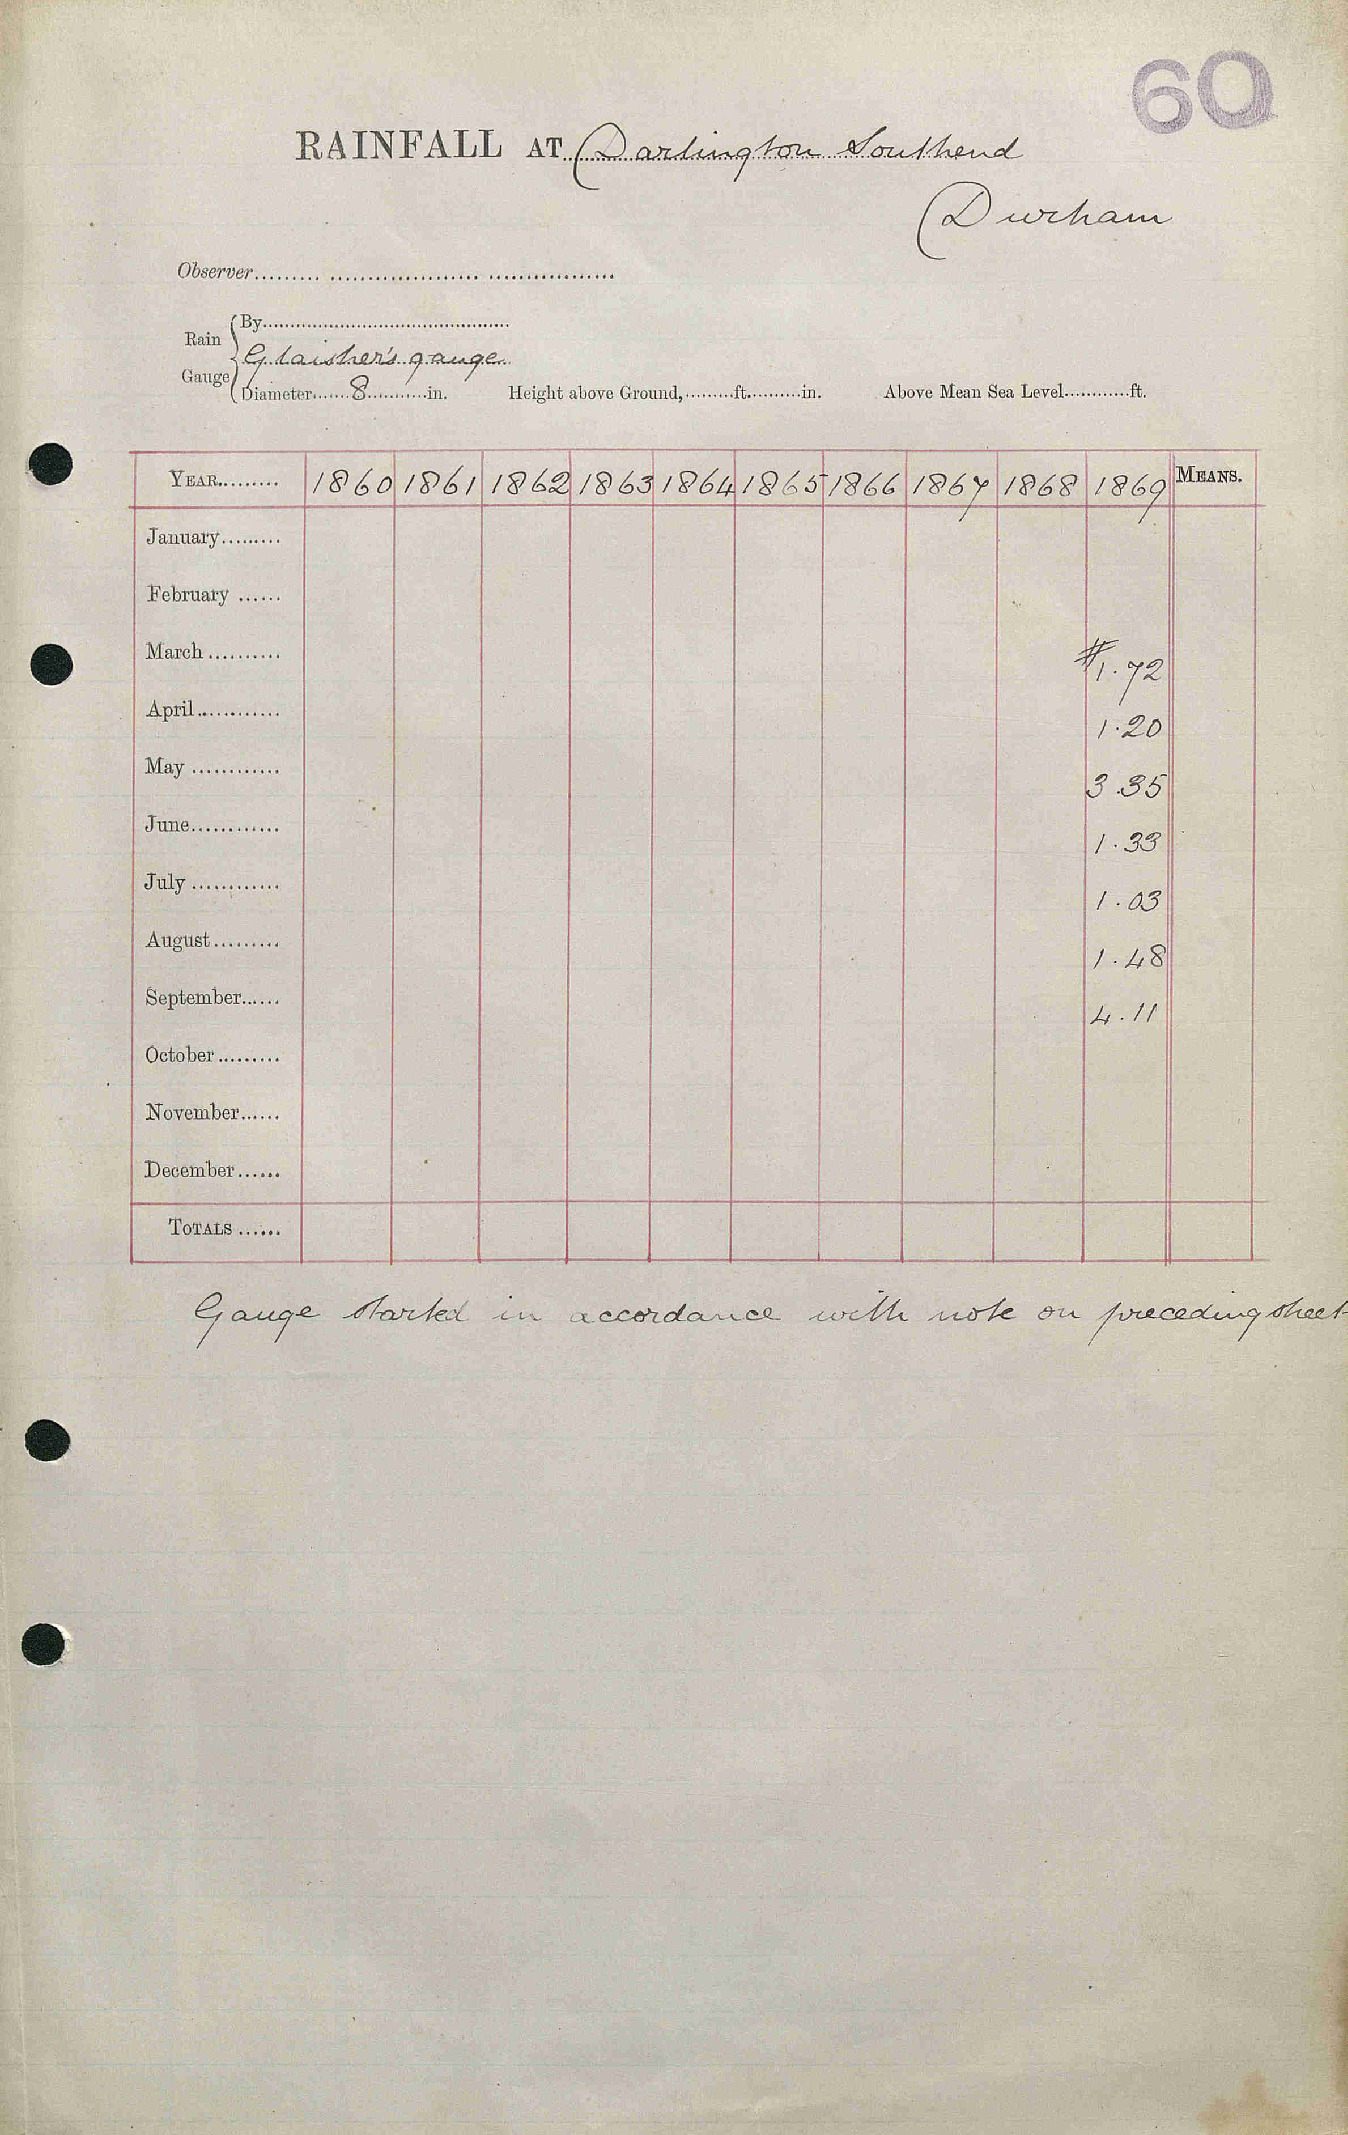 60
RAINFALL AT Darlington Southend
Durham
Observer
Rain Gauge
By
Glaisher's gauge
Diameter 8 in. Height above Ground, ft. in. Above Mean Sea Level ft.
YEAR 1860 1861 1862 1863 1864 1865 1866 1867 1868 1869 MEANS.
January
February
March #1.72
April 1.20
May 3.35
June 1.33
July 1.03
August 1.48
September 4.11
October
November
December
TOTALS
Gauge started in accordance with note on preceding sheet